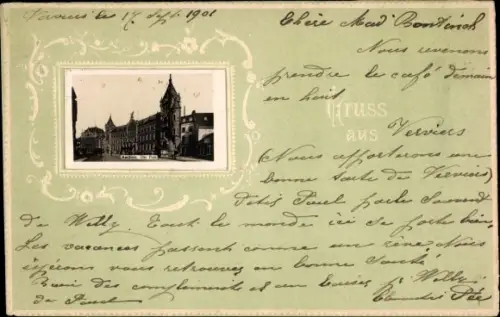 Verviers le 17 Sept 1901
Chère Mad Bontinck
Nous revenons
prendre le café demain
en haut
Gruss
aus
Verviers
(Nous apporterons une
bonne tarte de Verviers)
Petit Paul parle souvent
de Willy. Tout le monde ici se porte bien
Les vacances passent comme un rêve. Nous
espérons vous retrouver en bonne santé
Bien des compliments et un baiser p. Willy
de Paul